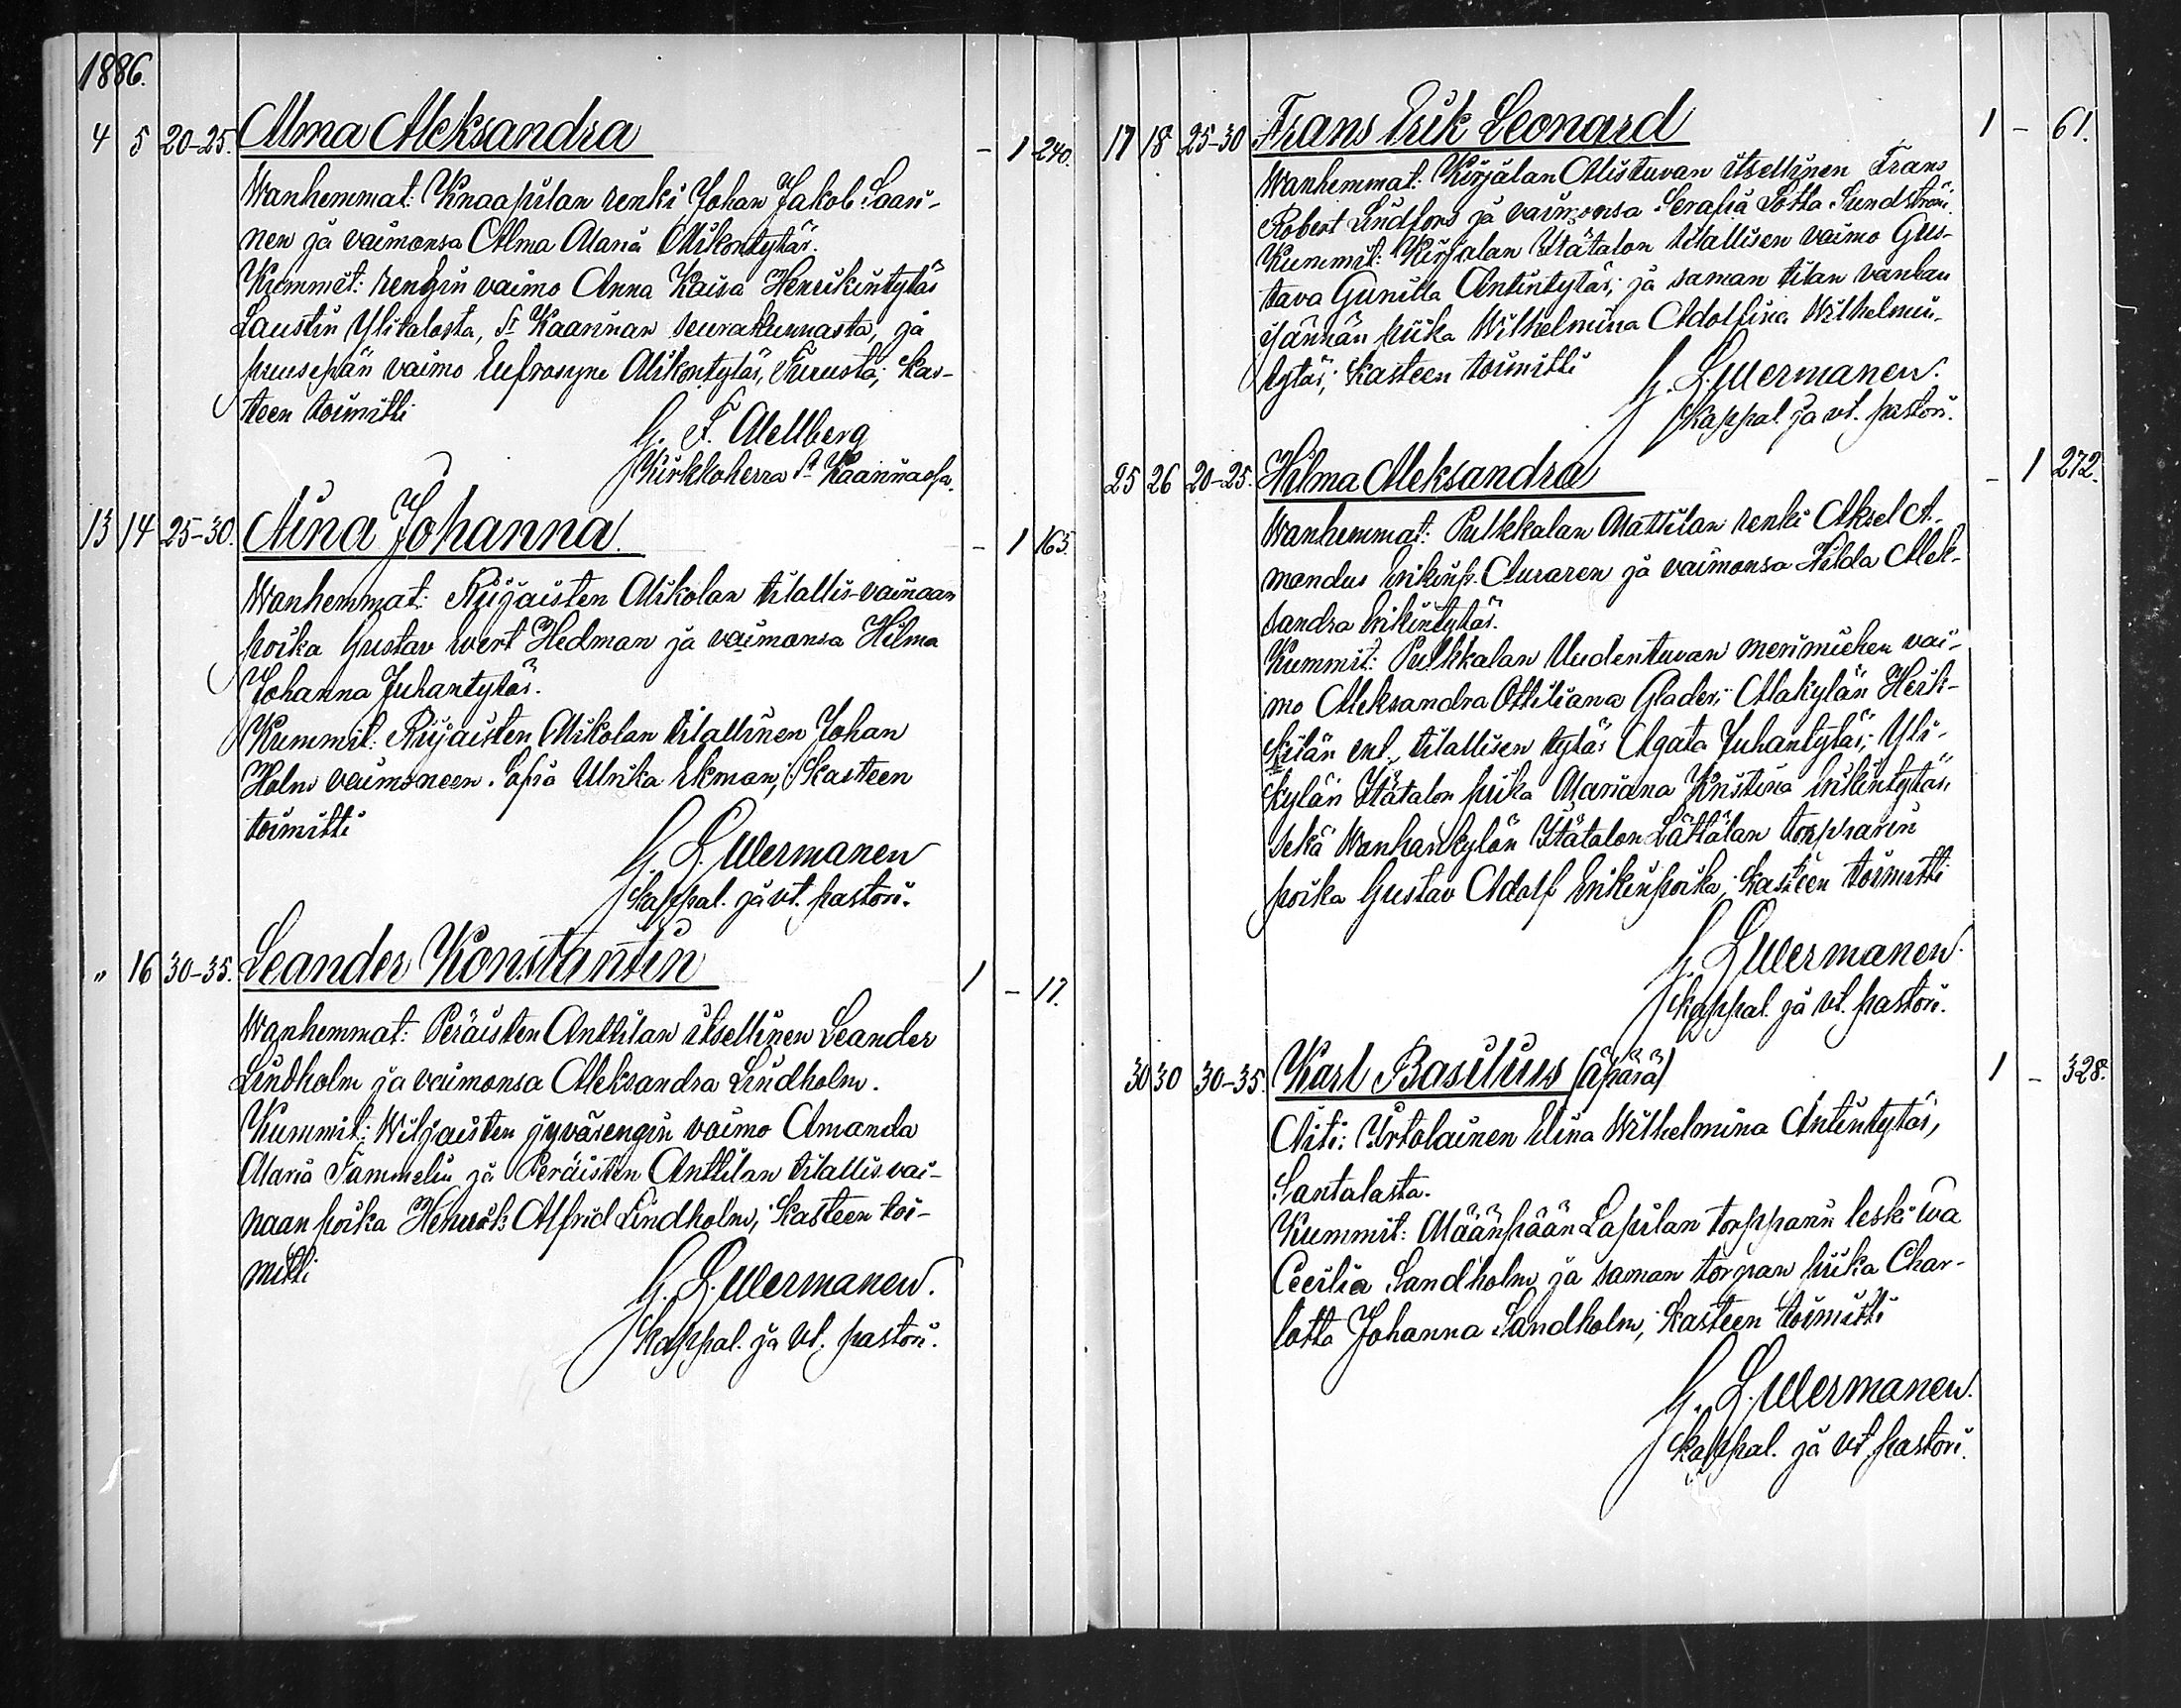 1886.
4 5 20-25. Alma Aleksandra - 1 240.
Wanhemmat: Knaapilan renki Johan Jakob Saari-
nen ja vaimonsa Alma Maria Mikontytär.
Kummit: rengin vaimo Anna Kaisa Henrikintytär
Laustin Ylitalosta, St Kaarinan seurakunnasta, ja
puusepän vaimo Eufrosyne Mikontytär, Turusta; Kas-
teen toimitti
G. F. Mellberg
Kirkkoherra St Kaarinassa.
13 14 25-30. Aina Johanna - 1 163.
Wanhemmat: Riijaisten Mikolan tilallis-vainaan
poika Gustav Evert Hedman ja vaimonsa Hilma
Johanna Juhantytär.
Kummit: Riijaisten Mikolan tilallinen Johan
Holm vaimoneen Sofia Ulrika Ekman; Kasteen
toimitti
G. L. Mermanen
Kappal. ja vt. pastori.
" 16 30-35. Leander Konstantin 1 - 17.
Wanhemmat: Peräisten Anttilan itsellinen Leander
Lindholm ja vaimonsa Aleksandra Lindholm.
Kummit: Wiljaisten jyvärengin vaimo Amanda
Maria Tammelin ja Peräisten Anttilan tilallis-vai-
naan poika Henrik Alfrid Lindholm; Kasteen toi-
mitti
G. L. Mermanen.
Kappal. ja vt. pastori.
17 18 25-30 Frans Erik Leonard 1 - 61.
Wanhemmat: Kirjalan Alistuvan itsellinen Frans
Robert Lindfors ja vaimonsa Serafia Lotta Sundström.
Kummit: Kirjalan Itätalon tilallisen vaimo Gus-
tava Gunilla Antintytär; ja saman tilan vanhan
isännän piika Wilhelmina Adolfina Wilhelmin-
tytär; Kasteen toimitti
G. L. Mermanen.
Kappal. ja vt. pastori.
25 26 20-25. Hilma Aleksandra - 1 272.
Wanhemmat: Pulkkalan Mattilan renki Aksel A-
mandus Erikinp. Auraren ja vaimonsa Hilda Alek-
sandra Erikintytär.
Kummit: Pulkkalan Uudentuvan merimiehen vai-
mo Aleksandra Ottiliana Grader; Alakylän Heik-
kilän ent. tilallisen tytär Agata Juhantytär; Yli-
kylän Itätalon piika Mariana Kristina Erikintytär,
sekä Wanhankylän Itätalon Lättälan torpparin
poika Gustav Adolf Erikinpoika; Kasteen toimitti
G. L. Mermanen.
Kappal. ja vt. pastori.
30 30 30-35. Karl Basilius (äpärä) 1 - 328.
Äiti: Irtolainen Elina Wilhelmina Antintytär,
Santalasta.
Kummit: Määnpään Lapilan torpparin leski Eva
Cecilia Sandholm ja saman torpan piika Char-
lotta Johanna Sandholm; Kasteen toimitti
G. L. Mermanen.
Kappal. ja vt. pastori.